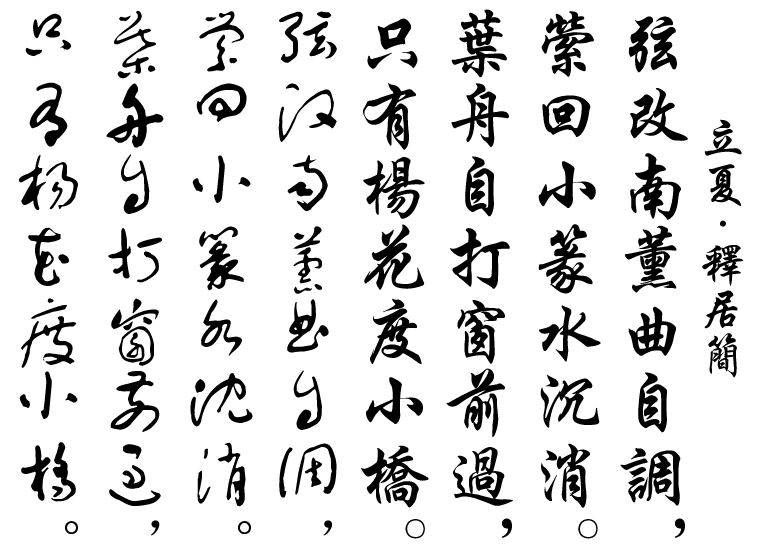 立夏·釋居簡
弦改南薰曲自調，
縈回小篆水沉消。
葉舟自打窗前過，
只有楊花度小橋。
弦改南薰曲自調，
縈回小篆水沉消。
葉舟自打窗前過，
只有楊花度小橋。